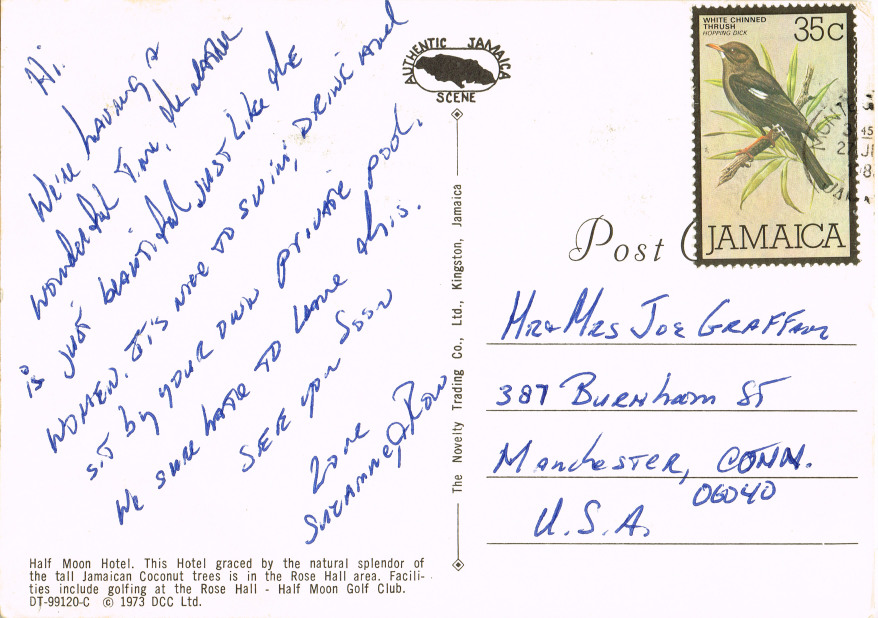 Hi.
We're having a
wonderful time, the weather
is just beautiful just like the
women. It's nice to swim, drink and
sit by your own private pool.
We sure hate to leave this.
See you soon
Love
Suzanne & Ron
Half Moon Hotel. This Hotel graced by the natural splendor of
the tall Jamaican Coconut trees is in the Rose Hall area. Facili-
ties include golfing at the Rose Hall - Half Moon Golf Club.
DT-99120-C © 1973 DCC Ltd.
AUTHENTIC JAMAICA
SCENE
The Novelty Trading Co., Ltd., Kingston, Jamaica
WHITE CHINNED
THRUSH
HOPPING DICK
35c
JAMAICA
45
27
Post
Mr & Mrs Joe Graffam
387 Burnham St
Manchester, Conn.
06040
U.S.A.